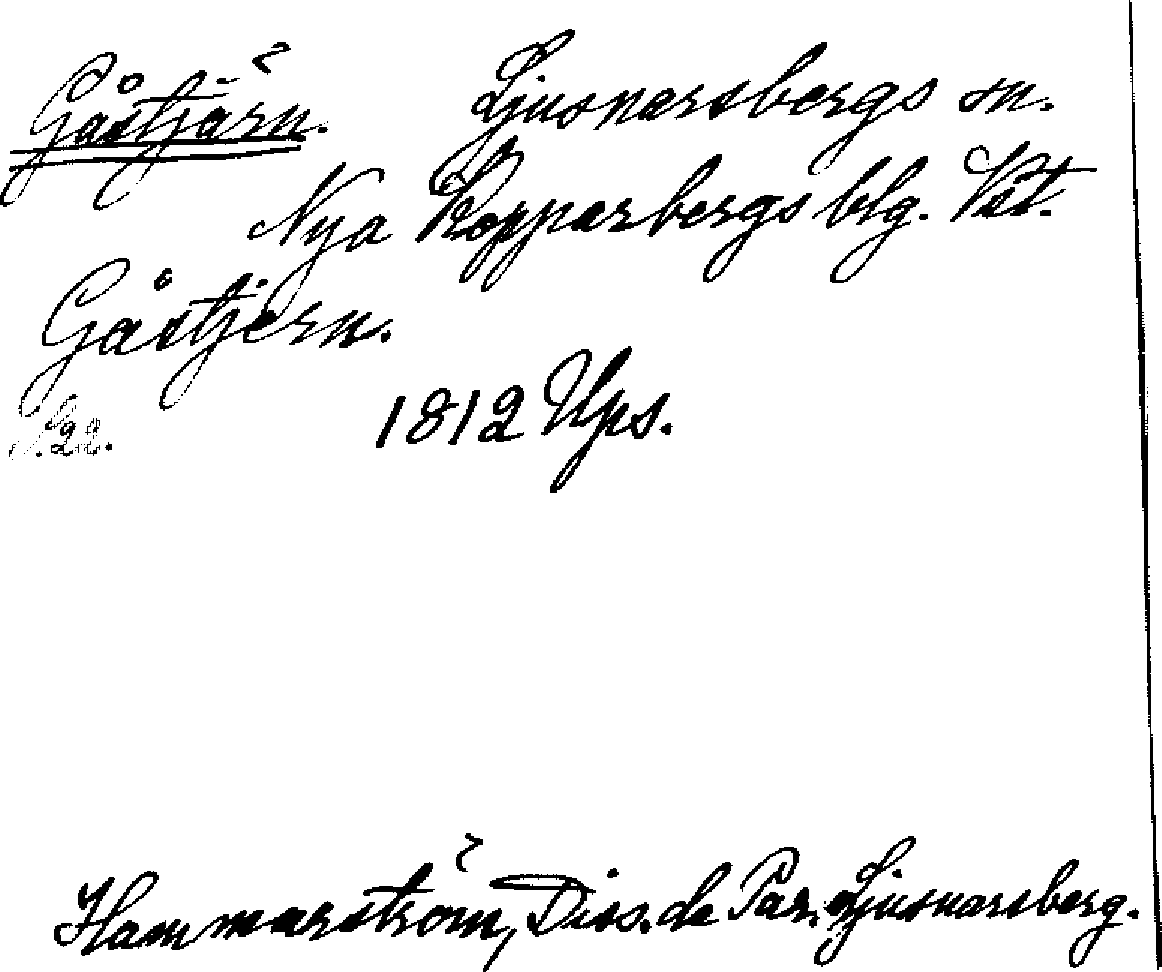 Gåstjärn. Ljusnarsbergs sn.
Nya Kopparbergs blg. Vst.
Gåstjern.
S. 22.
1812 Ups.
Hammarström, Diss. de Par. Ljusnarsberg.